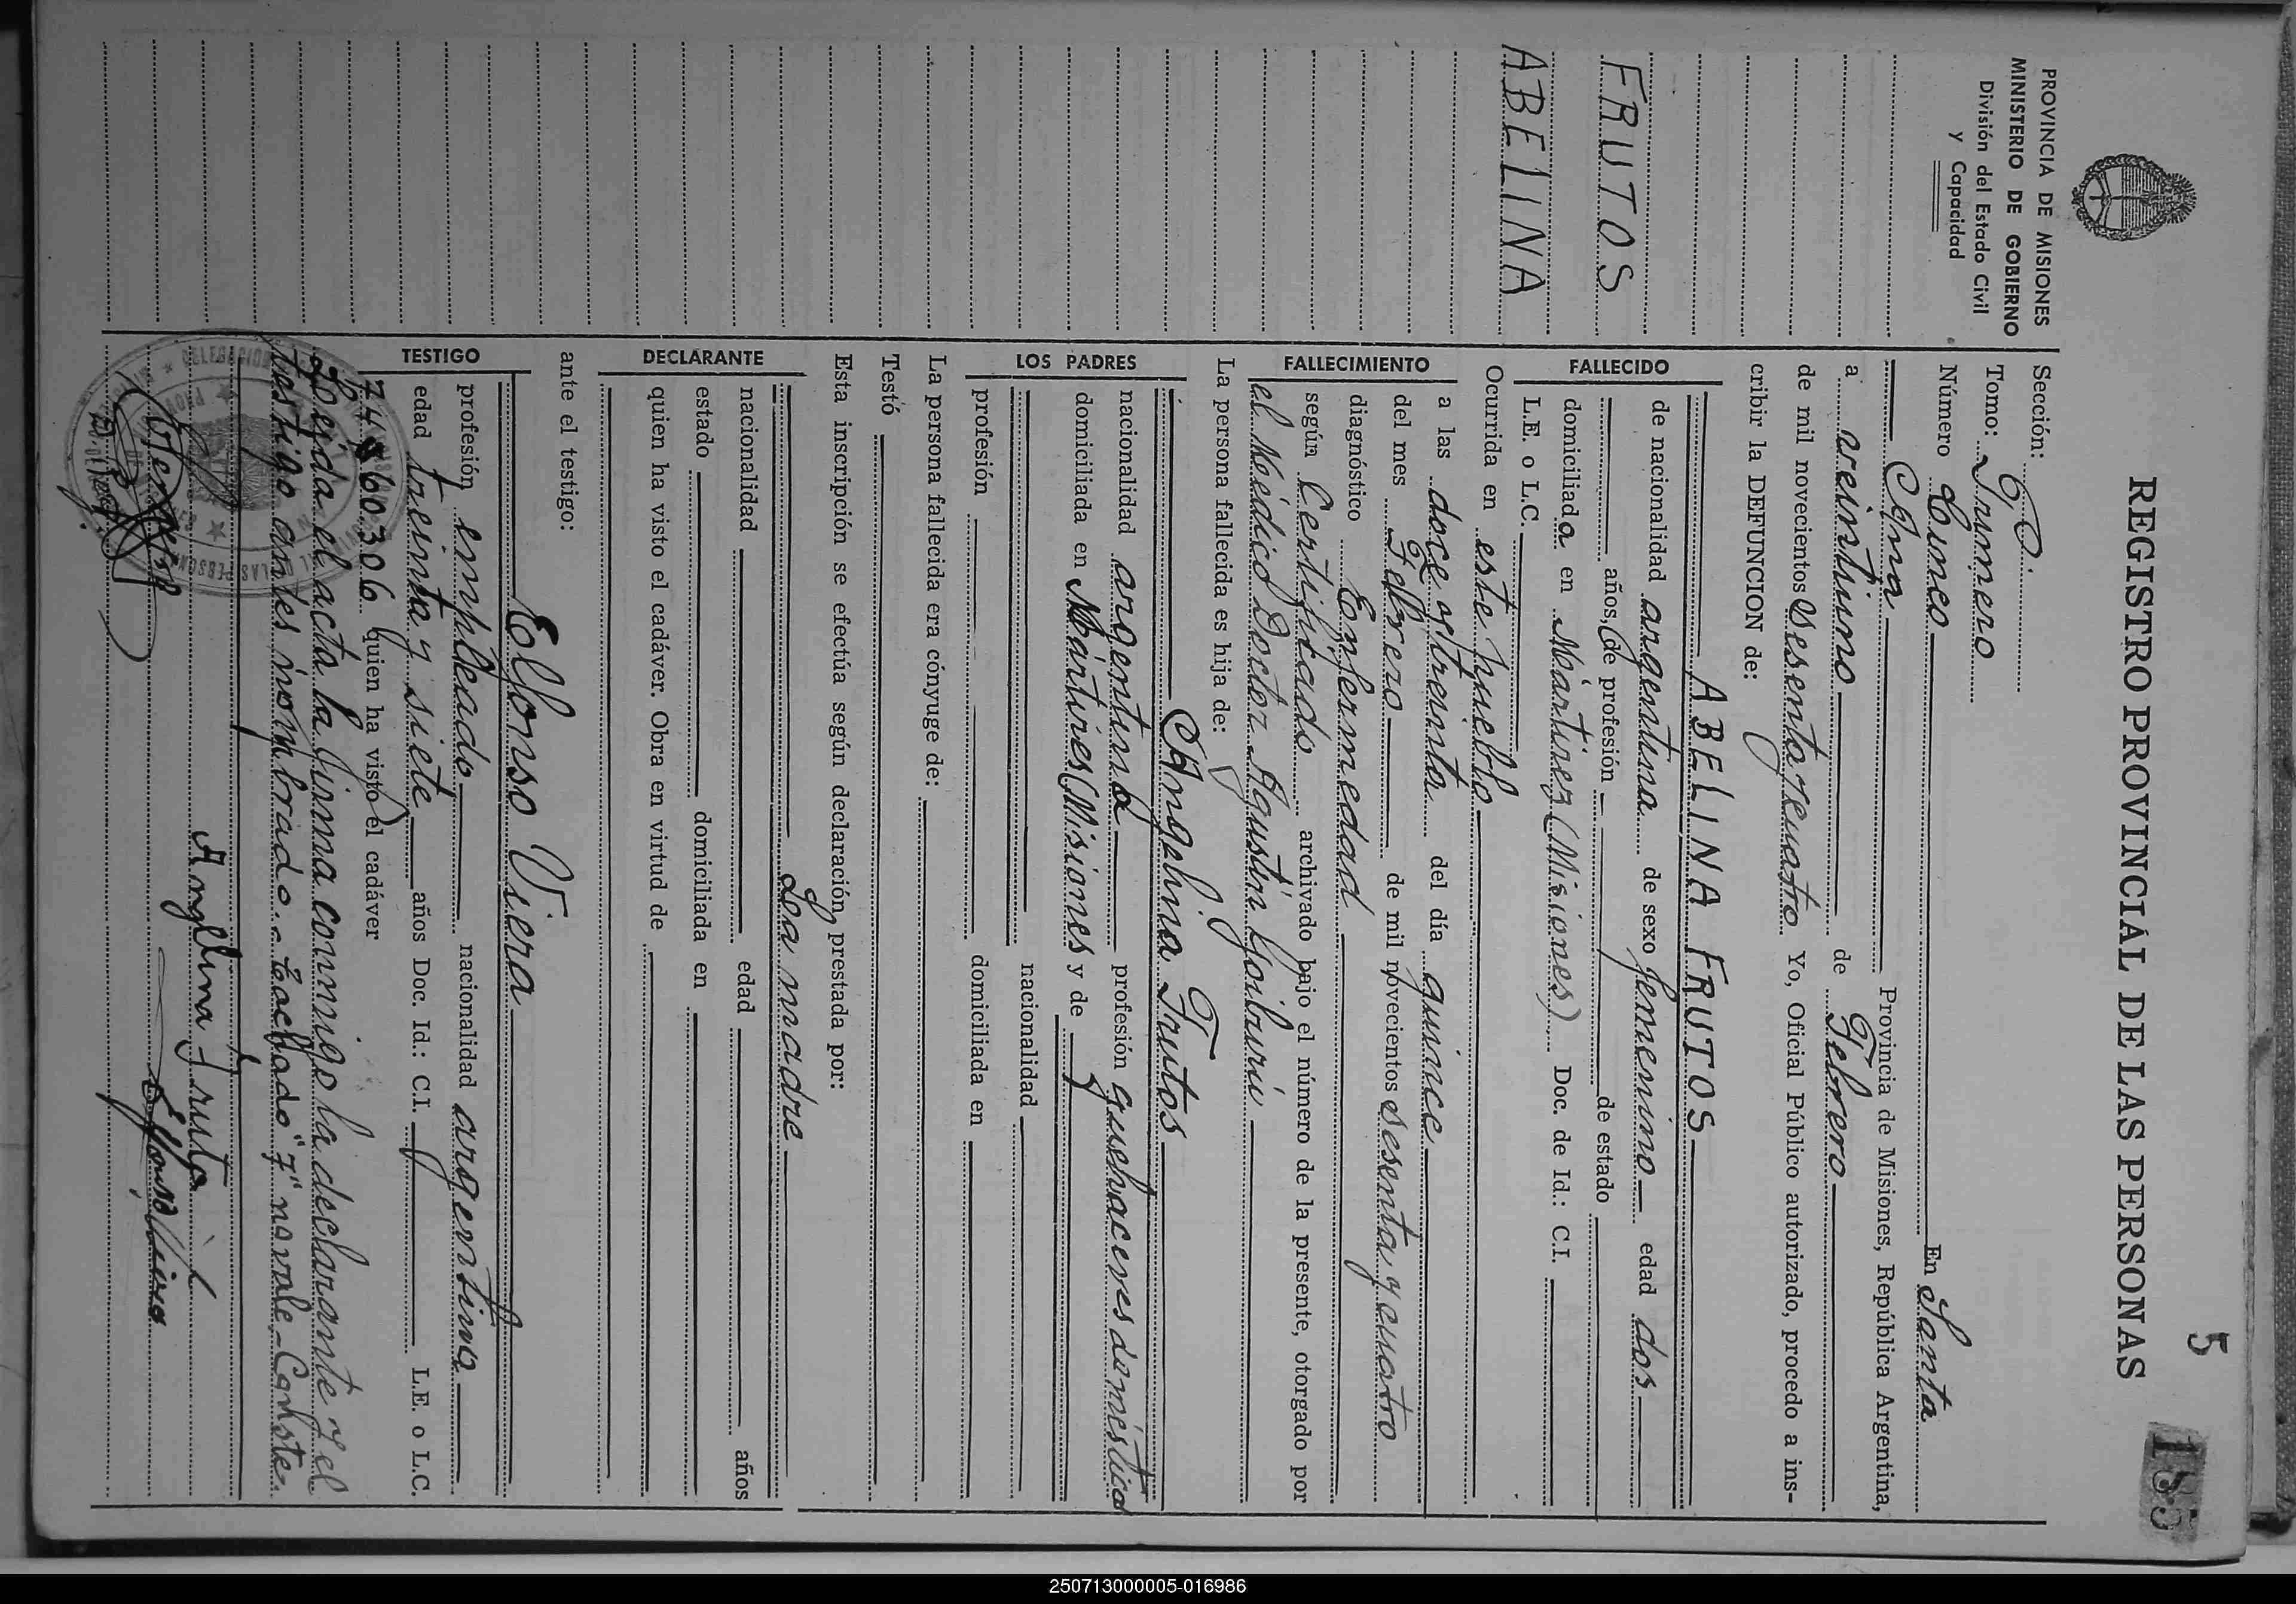 5
185
REGISTRO PROVINCIAL DE LAS PERSONAS
PROVINCIA DE MISIONES
MINISTERIO DE GOBIERNO
División del Estado Civil
y Capacidad
FRUTOS
ABELINA
Sección:
Tomo: Primero
Número Cinco En Santa
Ana Provincia de Misiones, República Argentina,
a veintiuno de Febrero
de mil novecientos Sesenta y cuatro Yo, Oficial Público autorizado, procedo a ins-
cribir la DEFUNCION de:
FALLECIDO
ABELINA FRUTOS
de nacionalidad argentina de sexo femenino edad dos
años, de profesión de estado
domiciliada en Mártirez (Misiones) Doc. de Id.: C.I.
L.E. o L.C.
FALLECIMIENTO
Ocurrida en este pueblo
a las doce y treinta del día quince
del mes Febrero de mil novecientos sesenta y cuatro
diagnóstico Enfermedad
según Certificado archivado bajo el número de la presente, otorgado por
el Médico Doctor Agustín Goiburú
La persona fallecida es hija de:
LOS PADRES
Angelina Frutos
nacionalidad argentina profesión quehaceres doméstico
domiciliada en Mártires (Misiones y de
nacionalidad
profesión domiciliada en
La persona fallecida era cónyuge de:
Testó
Esta inscripción se efectúa según declaración prestada por:
DECLARANTE
La madre
nacionalidad edad años
estado domiciliada en
quien ha visto el cadáver. Obra en virtud de
ante el testigo:
TESTIGO
Elfonso Viera
profesión empleado nacionalidad argentina
edad treinta y siete años Doc. Id.: C.I. L.E. o L.C.
quien ha visto el cadáver
Leída el acta la firma conmigo la declarante y el
testigo antes nombrado.- Tachado "7" no vale.- Conste.-
Angelina Fruto
250713000005-016986